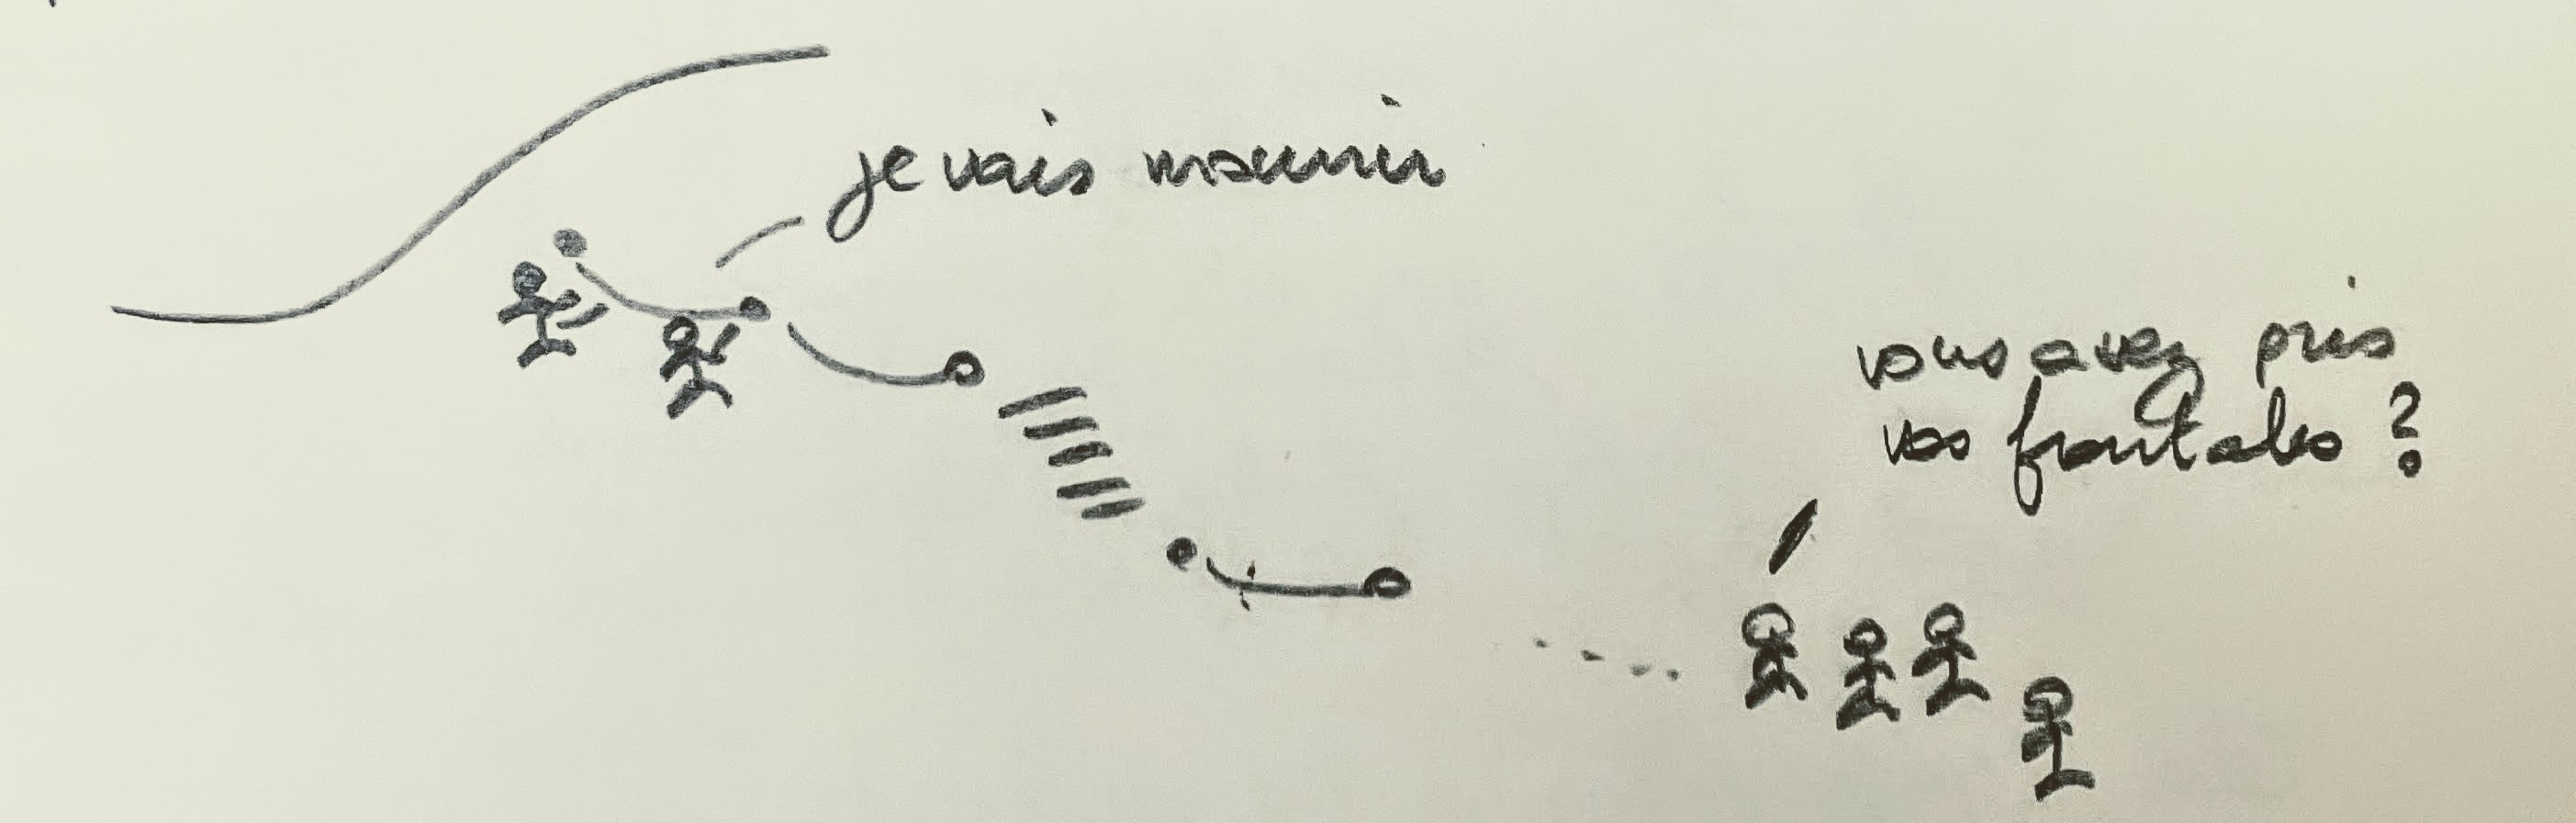 je vais mourir
vous avez pris
vos frontales ?